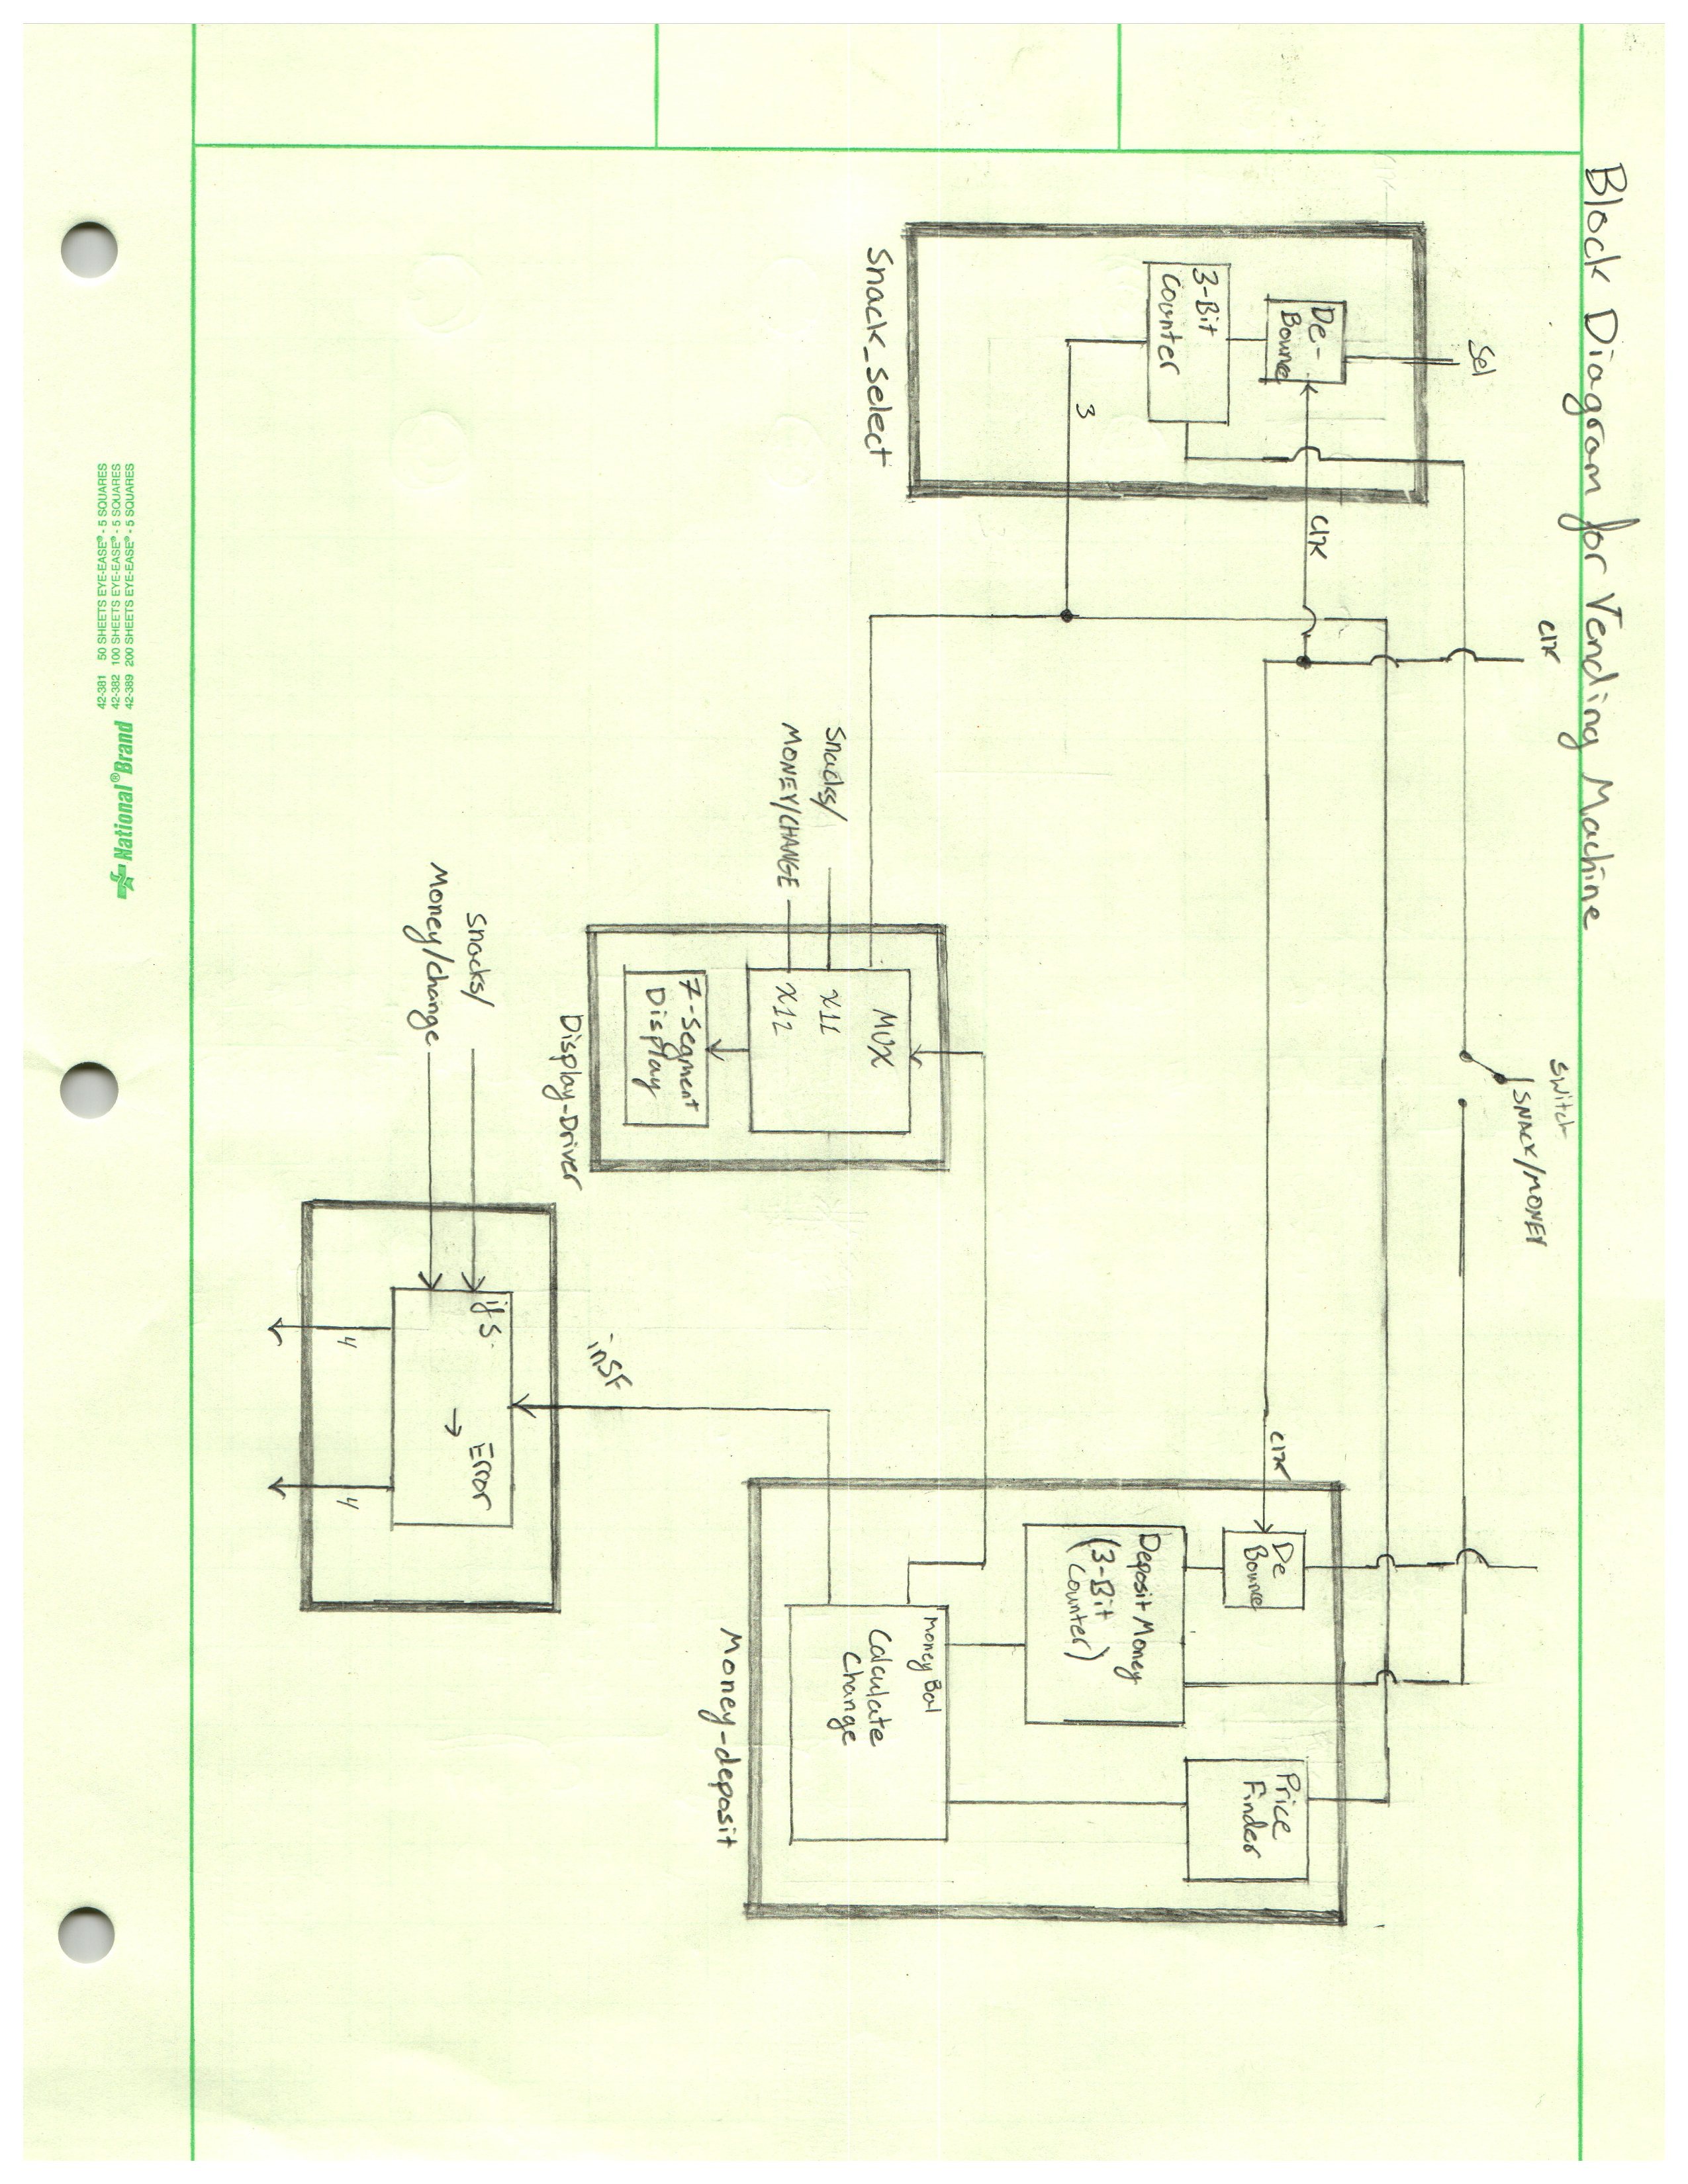 Block Diagram for Vending Machine
Clk
Switch
SNACK/MONEY
Sel
De-
Bounce
Clk
3-Bit
Counter
3
Snack_Select
Clk
De
Bounce
Price
Finder
Deposit Money
(3-Bit
Counter)
Money Bal
Calculate
Change
Money-deposit
MUX
Snacks/
X11
MONEY/CHANGE
X12
7-Segment
Display
Display-Driver
inSF
Snacks/
Money/Change
if S.
Error
→
4
4
National® Brand
42-381 50 SHEETS EYE-EASE® - 5 SQUARES
42-382 100 SHEETS EYE-EASE® - 5 SQUARES
42-389 200 SHEETS EYE-EASE® - 5 SQUARES